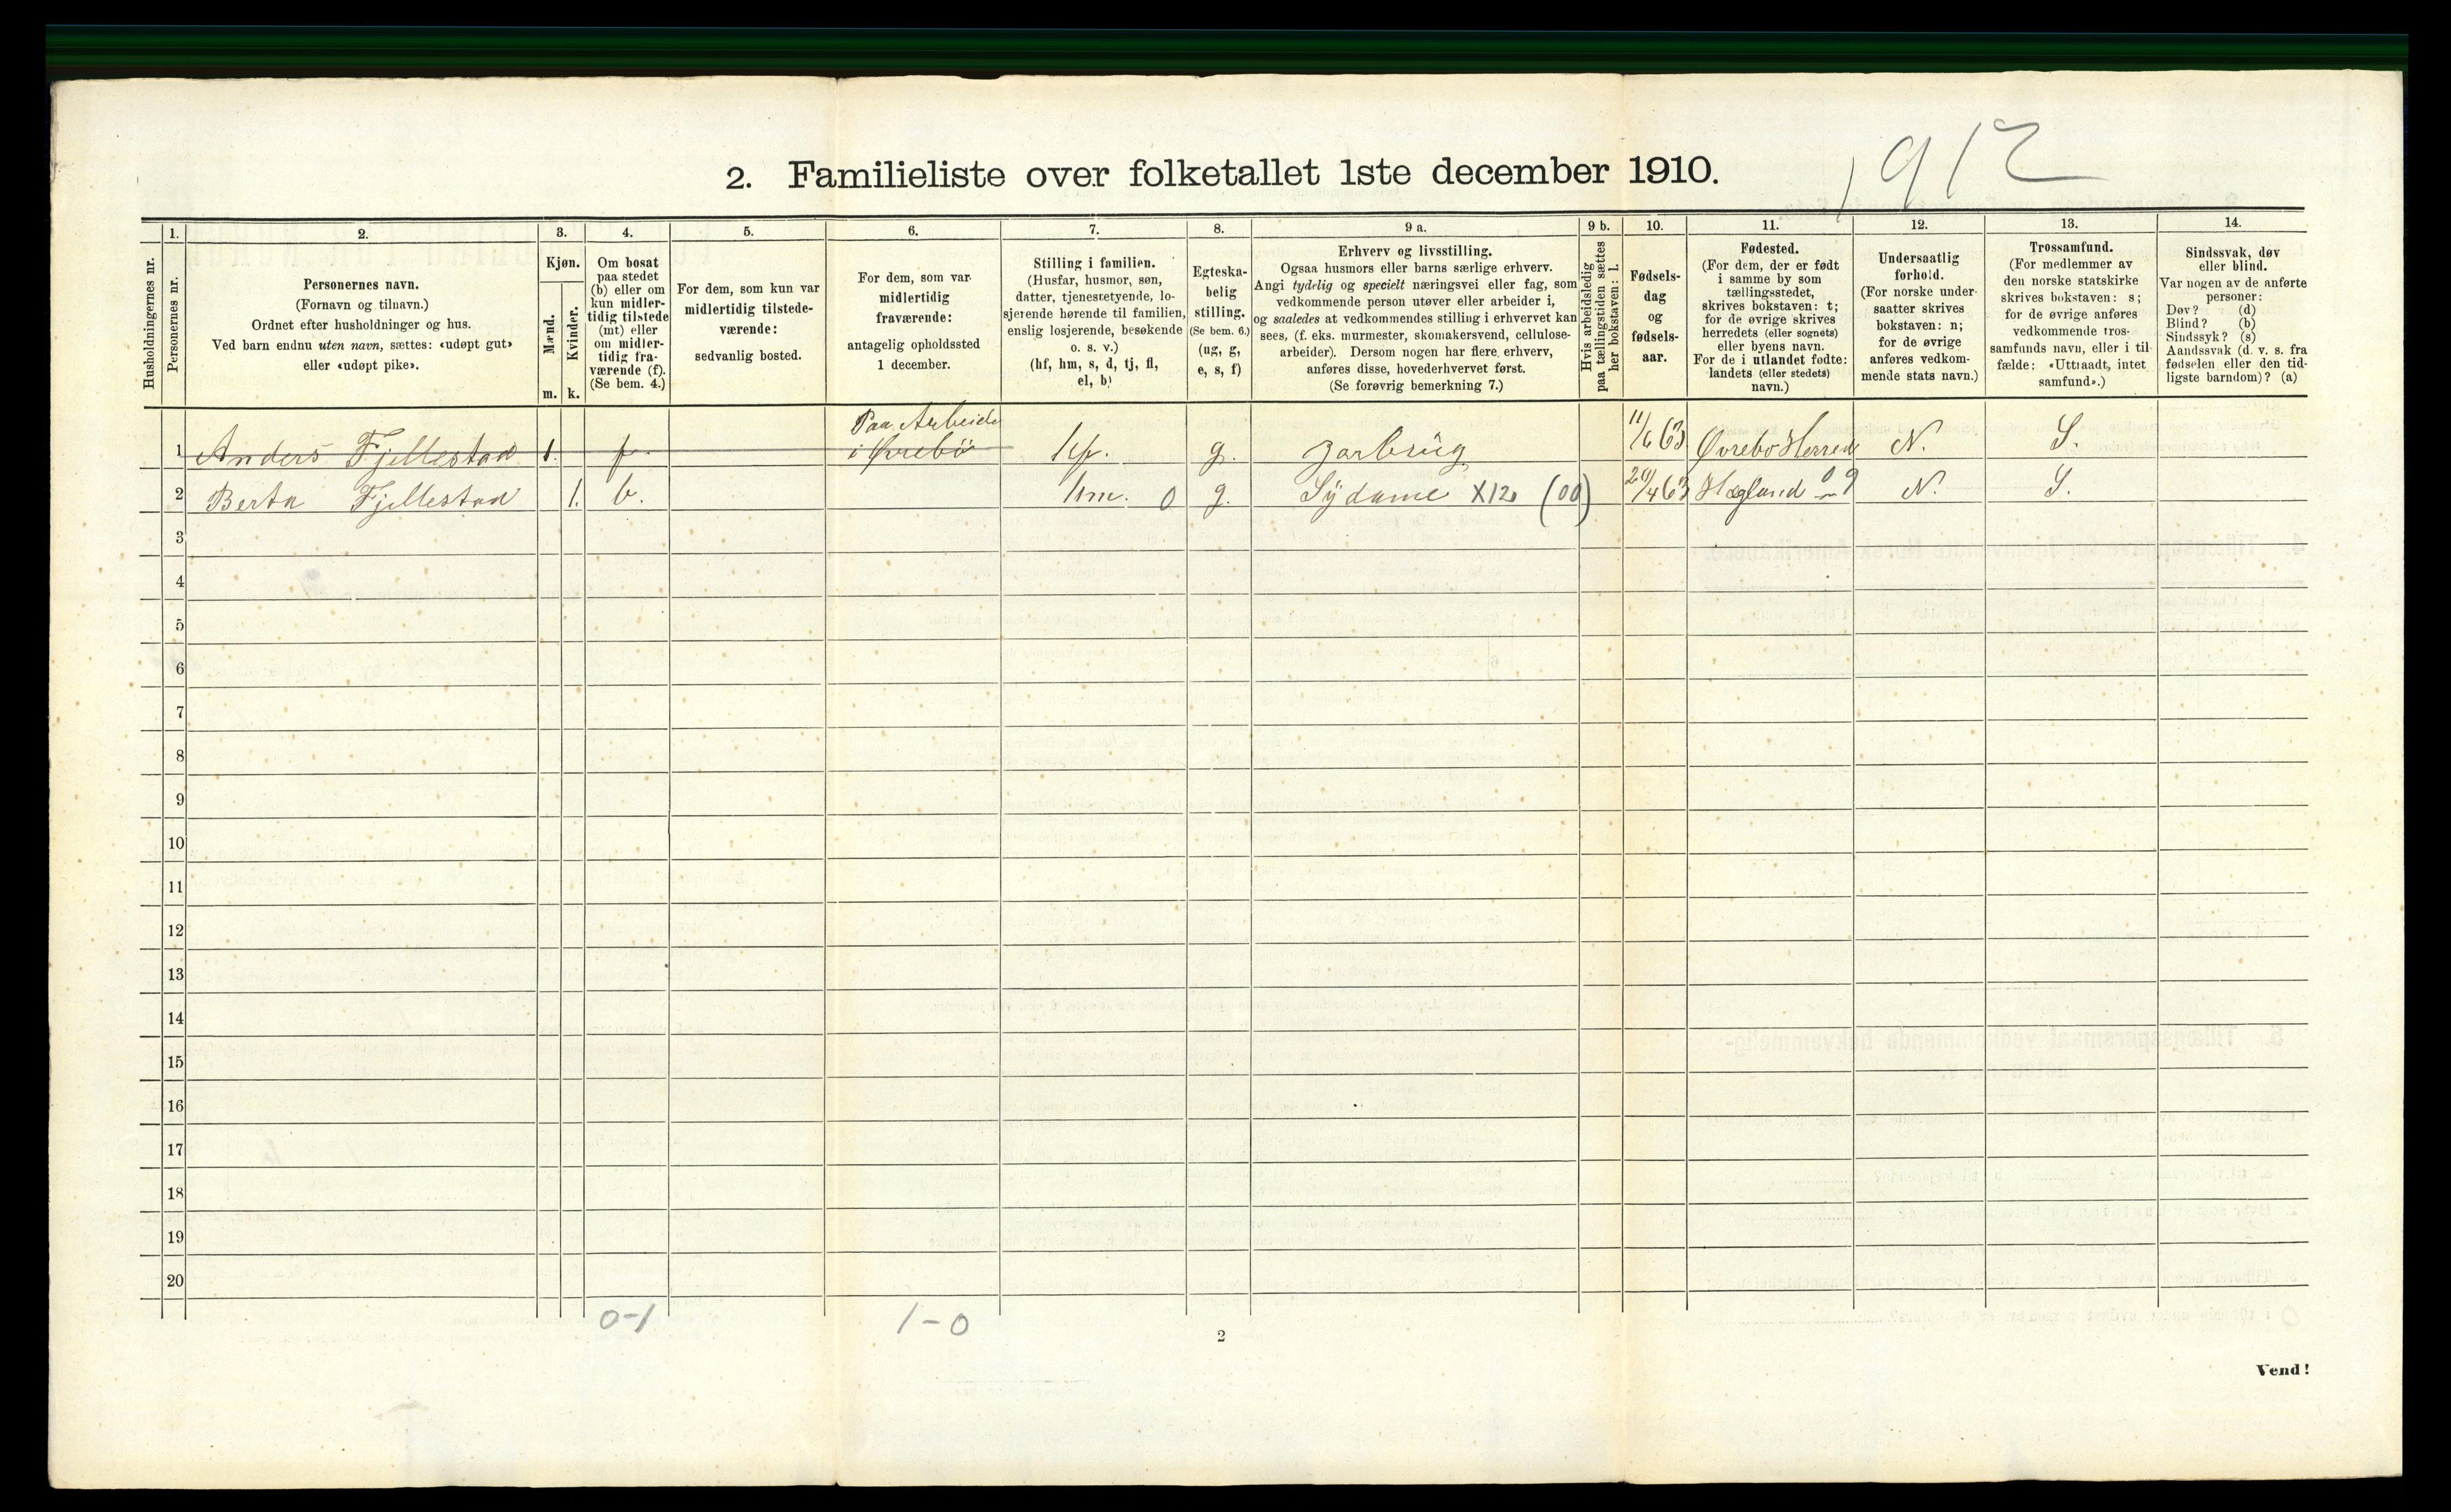 1912
2. Familieliste over folketallet 1ste december 1910.
1. 2. 3. 4. 5. 6. 7. 8. 9 a. 9 b. 10. 11. 12. 13. 14.
Husholdningernes nr.
Personernes nr.
Personernes navn.
(Fornavn og tilnavn.)
Ordnet efter husholdninger og hus.
Ved barn endnu uten navn, sættes: «udøpt gut»
eller «udøpt pike».
Kjøn.
Mænd.
m.
Kvinder.
k.
Om bosat
paa stedet
(b) eller om
kun midler-
tidig tilstede
(mt) eller
om midler-
tidig fra-
værende (f).
(Se bem. 4.)
For dem, som kun var
midlertidig tilstede-
værende:
sedvanlig bosted.
For dem, som var
midlertidig
fraværende:
antagelig opholdssted
1 december.
Stilling i familien.
(Husfar, husmor, søn,
datter, tjenestetyende, lo-
sjerende hørende til familien,
enslig losjerende, besøkende
o. s. v.)
(hf, hm, s, d, tj, fl,
el, b)
Egteska-
belig
stilling.
(Se bem. 6.)
(ug, g,
e, s, f)
Erhverv og livsstilling.
Ogsaa husmors eller barns særlige erhverv.
Angi tydelig og specielt næringsvei eller fag, som
vedkommende person utøver eller arbeider i,
og saaledes at vedkommendes stilling i erhvervet kan
sees, (f. eks. murmester, skomakersvend, cellulose-
arbeider). Dersom nogen har flere erhverv,
anføres disse, hovederhvervet først.
(Se forøvrig bemerkning 7.)
Hvis arbeidsledig
paa tællingstiden sættes
her bokstaven: l.
Fødsels-
dag
og
fødsels-
aar.
Fødested.
(For dem, der er født
i samme by som
tællingsstedet,
skrives bokstaven: t;
for de øvrige skrives
herredets (eller sognets)
eller byens navn.
For de i utlandet fødte:
landets (eller stedets)
navn.)
Undersaatlig
forhold.
(For norske under-
saatter skrives
bokstaven: n;
for de øvrige
anføres vedkom-
mende stats navn.)
Trossamfund.
(For medlemmer av
den norske statskirke
skrives bokstaven: s;
for de øvrige anføres
vedkommende tros-
samfunds navn, eller i til-
fælde: «Uttraadt, intet
samfund».)
Sindssvak, døv
eller blind.
Var nogen av de anførte
personer:
Døv? (d)
Blind? (b)
Sindssyk? (s)
Aandssvak (d. v. s. fra
fødselen eller den tid-
ligste barndom)? (a)
Paa Arbeide
1 Anders Fjellestad 1. f. i Øvrebö hf. g. Jorbrüg 11/6 63 Øvrebo Herred N. S.
2 Berta Fjellestad 1. b. hm. 0 g. Sÿdame X12 (00) 20/4 63 Hægland 09 N. S.
3
4
5
6
7
8
9
10
11
12
13
14
15
16
17
18
19
20
0-1 1-0
2
Vend!